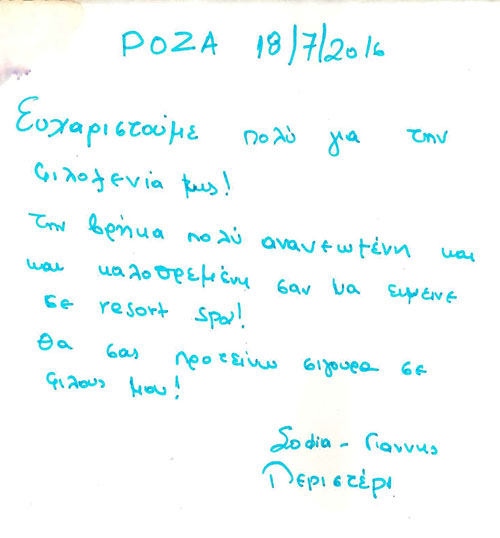 ΡΟΖΑ 18/7/2016
Ευχαριστούμε πολύ για την
φιλοξενία μας!
Την βρήκα πολύ ανανεωμένη και
και καλοθρεμένη σαν να ειμεινε
σε resort spa!
Θα σας προτείνω σιγουρα σε
φιλους μου!
Sofia - Γιαννης
Περιστέρι